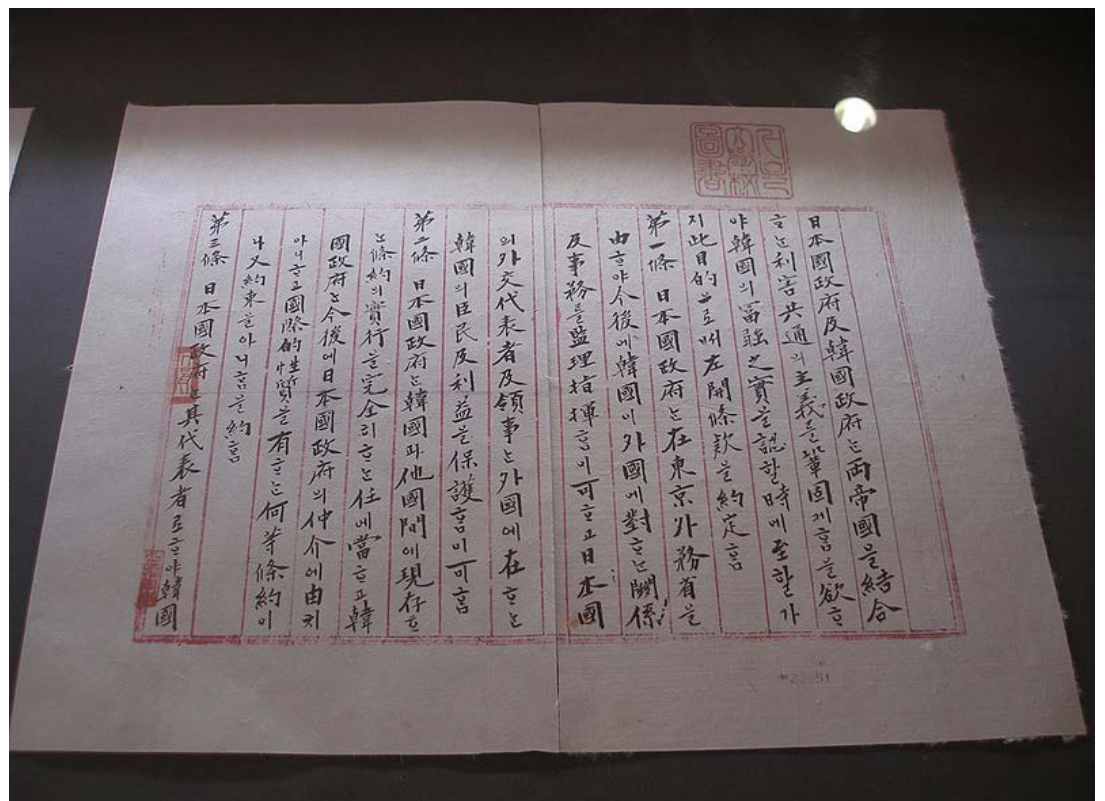 日本國政府及韓國政府는両帝國을結合
ᄒᆞ는利害共通의主義를鞏固케홈을欲ᄒᆞ
야韓國의富强之實을認할時에至할가
지此目的으로써左開條欵을約定홈
第一條 日本國政府는在東京外務省을
由ᄒᆞ야今後에韓國이外國에對ᄒᆞ는關係
及事務를監理指揮홈이可ᄒᆞ고日本國
의外交代表者及領事는外國에在ᄒᆞ는
韓國의臣民及利益을保護홈이可홈
第二條 日本國政府는韓國과他國間에現存ᄒᆞ
는條約의實行을完全히ᄒᆞ는任에當ᄒᆞ고韓
國政府는今後에日本國政府의仲介에由치
아니ᄒᆞ고國際的性質을有ᄒᆞ는何等條約이
나又約束을아니홈을約홈
第三條 日本國政府는其代表者로ᄒᆞ야韓國